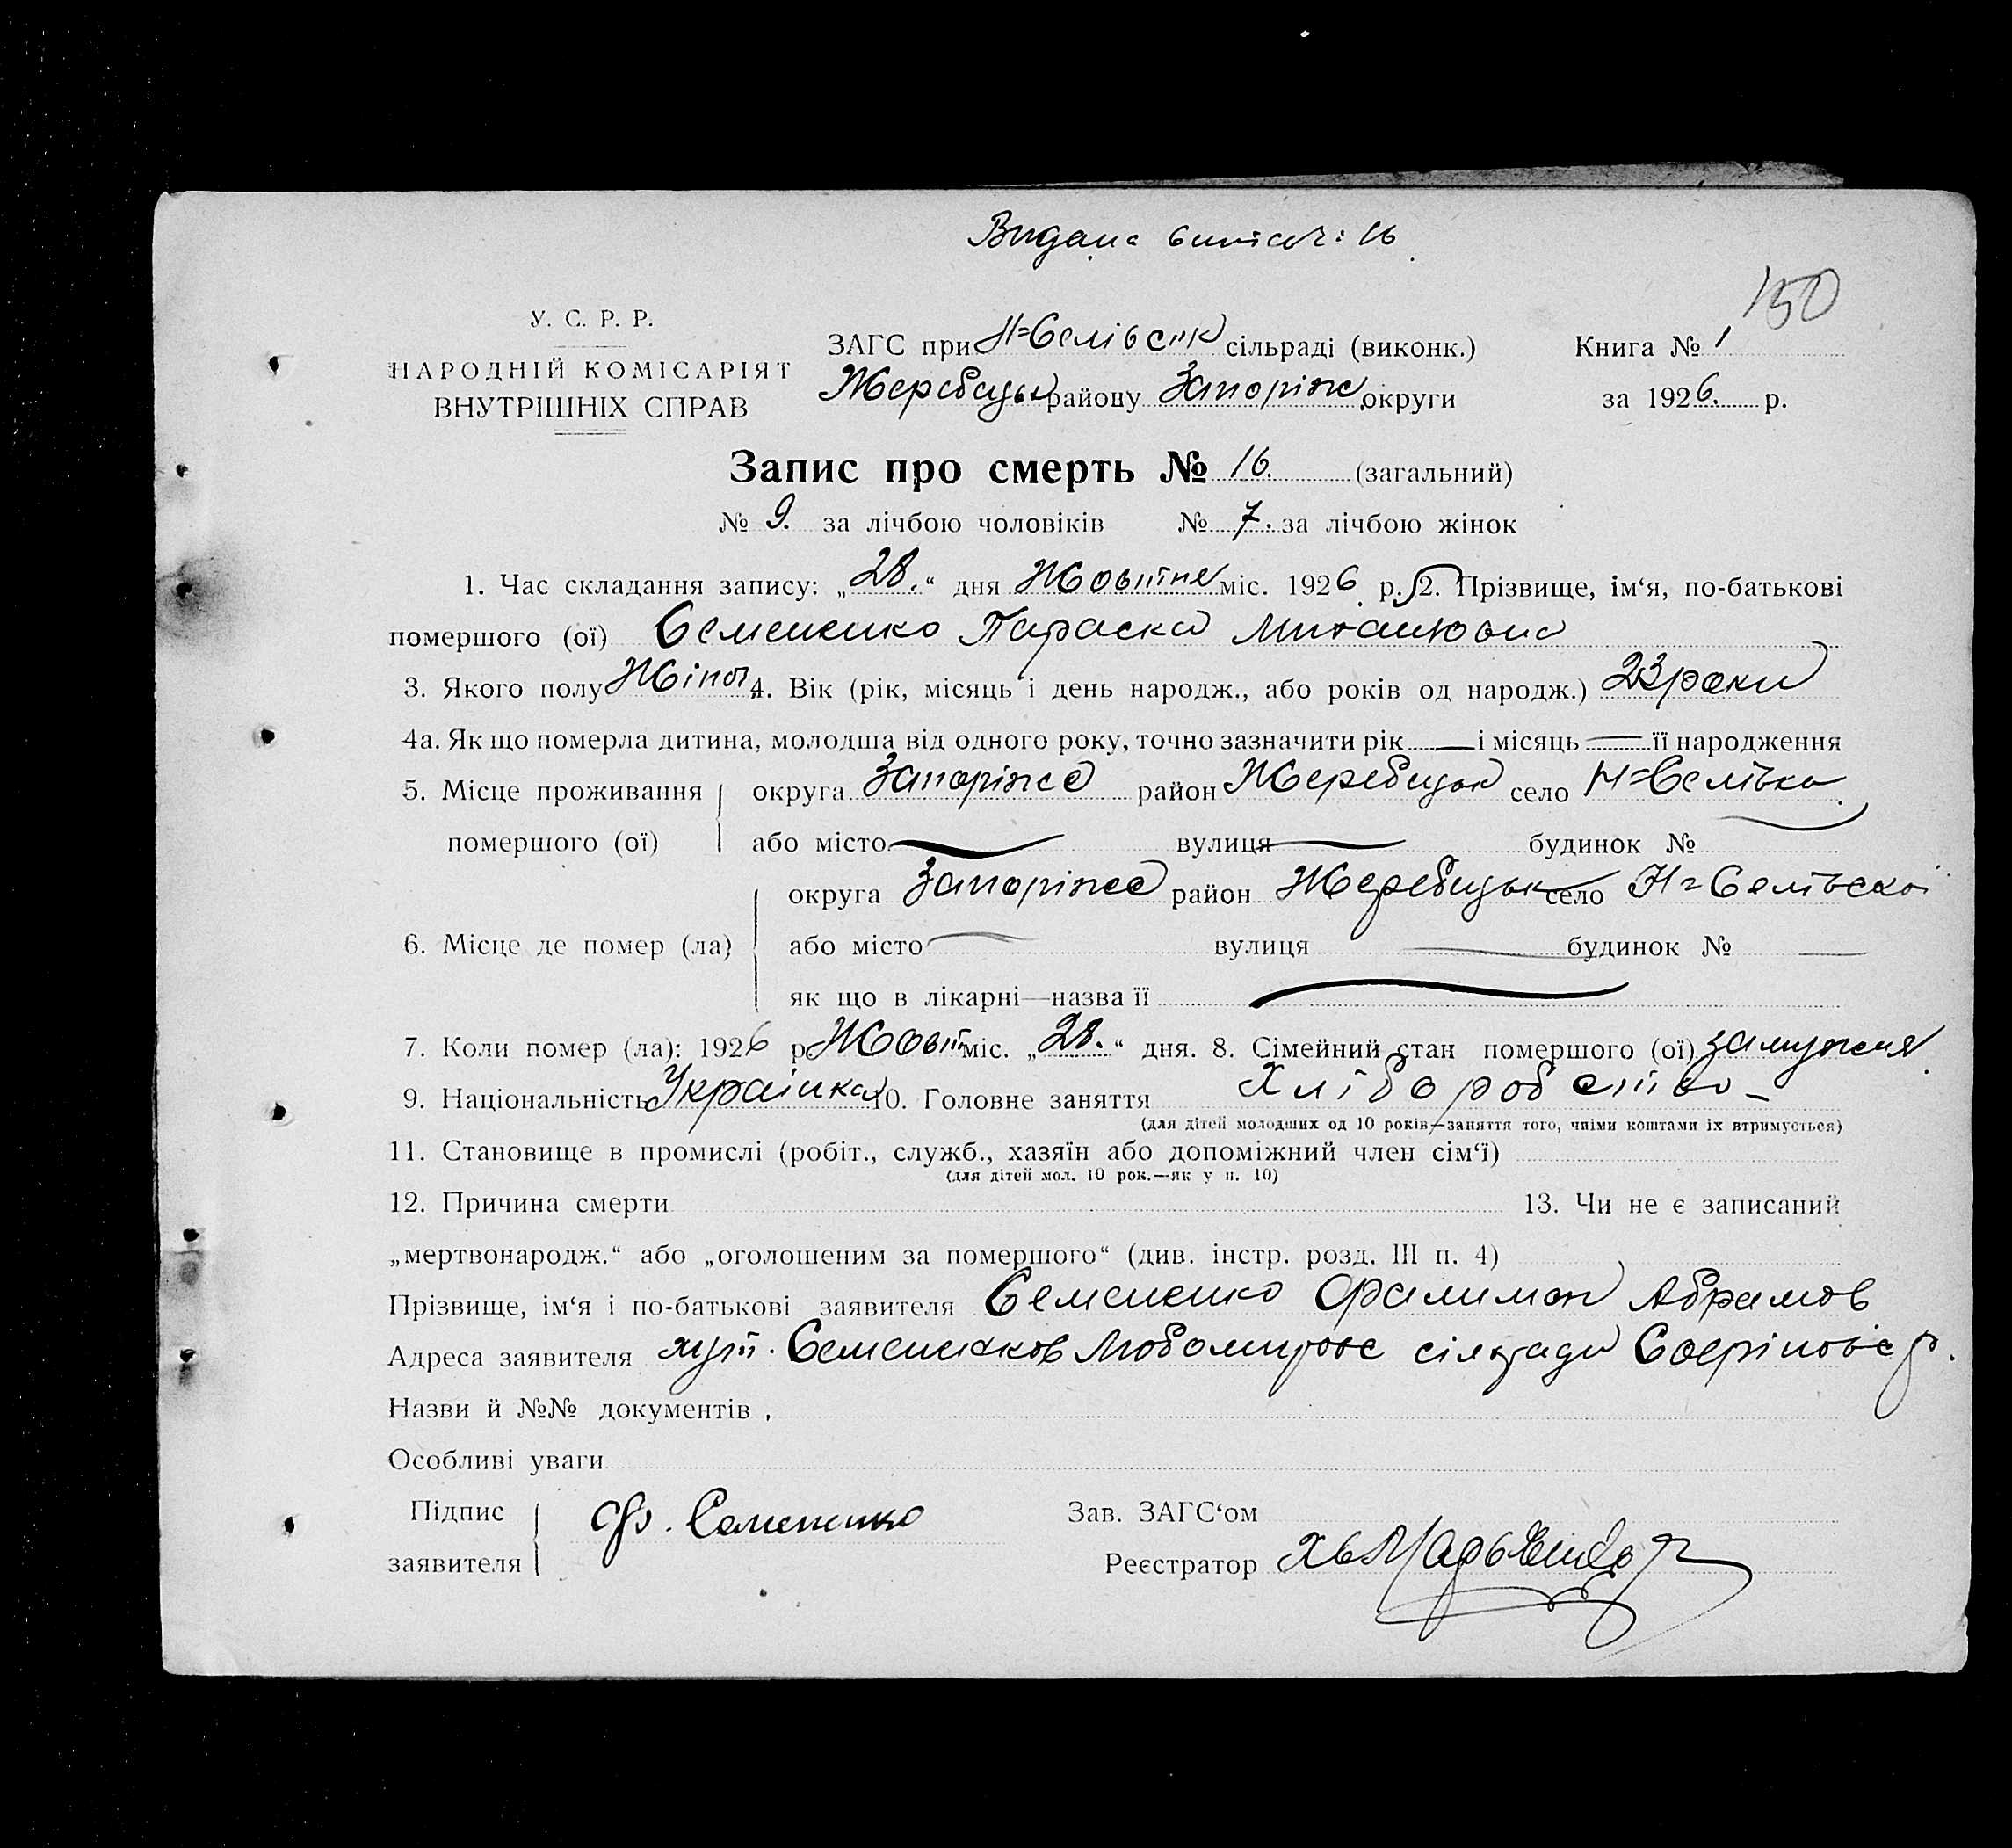 Видана виписк: 16
150
У. С. Р. Р.
НАРОДНІЙ КОМІСАРІЯТ
ВНУТРІШНІХ СПРАВ
ЗАГС при Н=Селівськ сільраді (виконк.)
Жеребецьк району Запоріж. округи
Книга № 1
за 1926. р.
Запис про смерть № 16. (загальний)
№ 9. за лічбою чоловіків № 7. за лічбою жінок
1. Час складання запису: „28.“ дня Жовтня міс. 1926 р. 2. Прізвище, ім‘я, по-батькові
помершого (ої) Семененко Параска Михайловна
3. Якого полу Жіноч. 4. Вік (рік, місяць і день народж., або років од народж.) 23 роки
4а. Як що померла дитина, молодша від одного року, точно зазначити рік — і місяць — її народження
5. Місце проживання помершого (ої) округа Запоріжс район Жеребецьк село Н=Селівка
або місто — вулиця — будинок №
6. Місце де помер (ла) округа Запоріжс район Жеребецьк село Н=Селівской
або місто — вулиця — будинок № —
як що в лікарні—назва її —
7. Коли помер (ла): 1926 р. Жовт міс. „28.“ дня. 8. Сімейний стан помершого (ої) замужня
9. Національність Українка 10. Головне заняття Хліборобство
(для дітей молодших од 10 років—заняття того, чиїми коштами їх втримується)
11. Становище в промислі (робіт., служб., хазяїн або допоміжний член сім‘ї)
(для дітей мол. 10 рок.—як у п. 10)
12. Причина смерти 13. Чи не є записаний
„мертвонародж.“ або „оголошеним за помершого“ (див. інстр. розд. III п. 4)
Прізвище, ім‘я і по-батькові заявителя Семененко Филимон Абрамов
Адреса заявителя хут. Семененков Любомировс сільради Софіновіс р.
Назви й №№ документів
Особливі уваги
Підпис заявителя Ф. Семененко
Зав. ЗАГС‘ом
Реєстратор